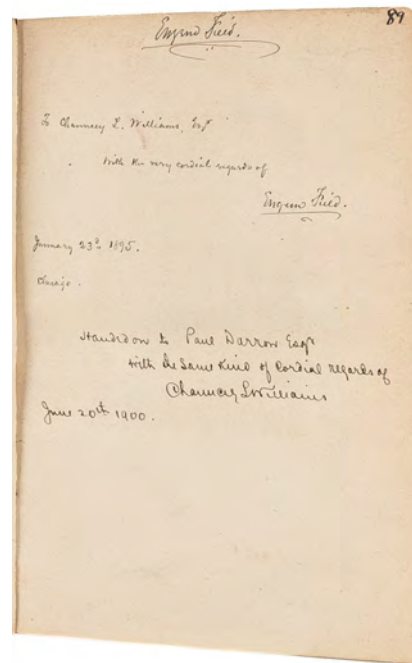 89
Eugene Field.
To Chauncey L. Williams, Esqr
With the very cordial regards of
Eugene Field.
January 23d 1895.
Chicago.
Handed on to Paul Darrow Esqr
with the same kind of cordial regards of
Chauncey L Williams
June 20th 1900.